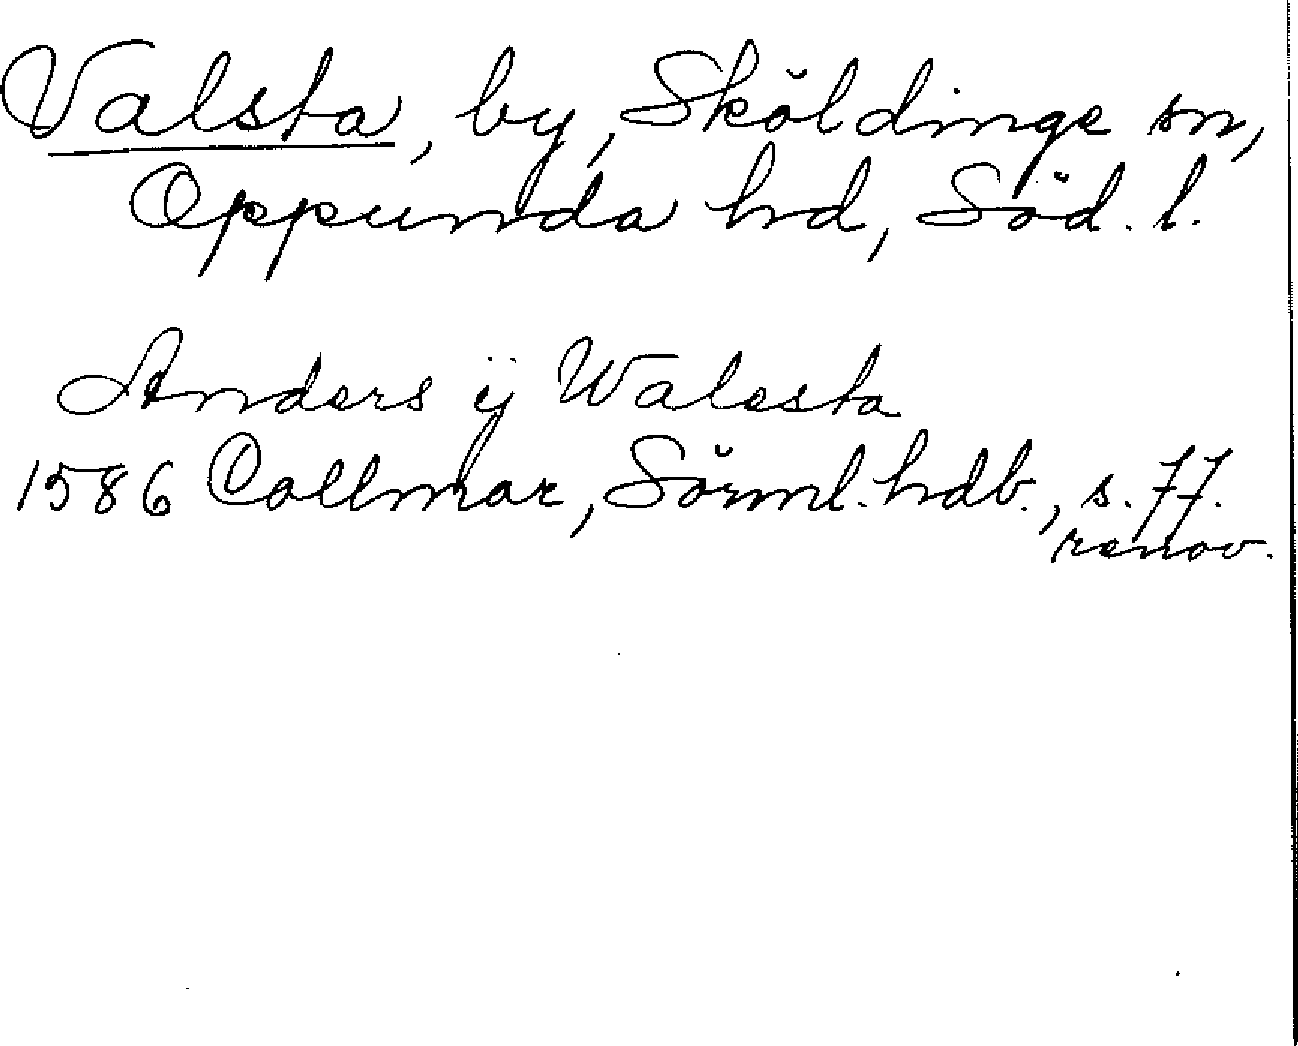 Valsta, by, Sköldinge sn,
Oppunda hd, Söd. l.
Anders ÿ Walesta
1586 Collmar, Sörml. hdb., s. 77.
renov.